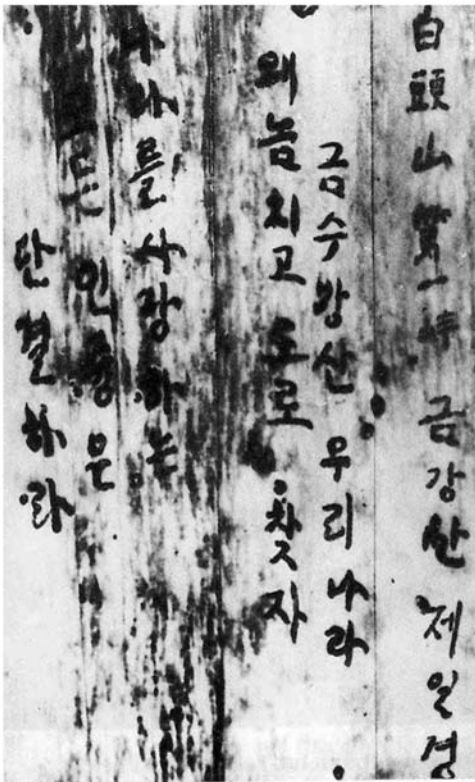 白頭山第一峰 금강산 제일경
금수강산 우리나라
왜놈치고 도로 찾자
나라를 사랑하는
모든
단결하라